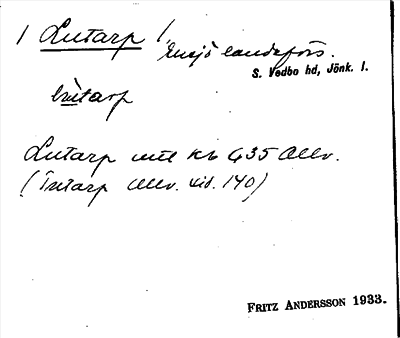 1 Lutarp /, Eksjö landsförs.
S. Vedbo hd, Jönk. l.
lùtarp
Lutarp utt Kb G35 Allv.
(Tutarp Allv. sid. 140)
FRITZ ANDERSSON 1933.